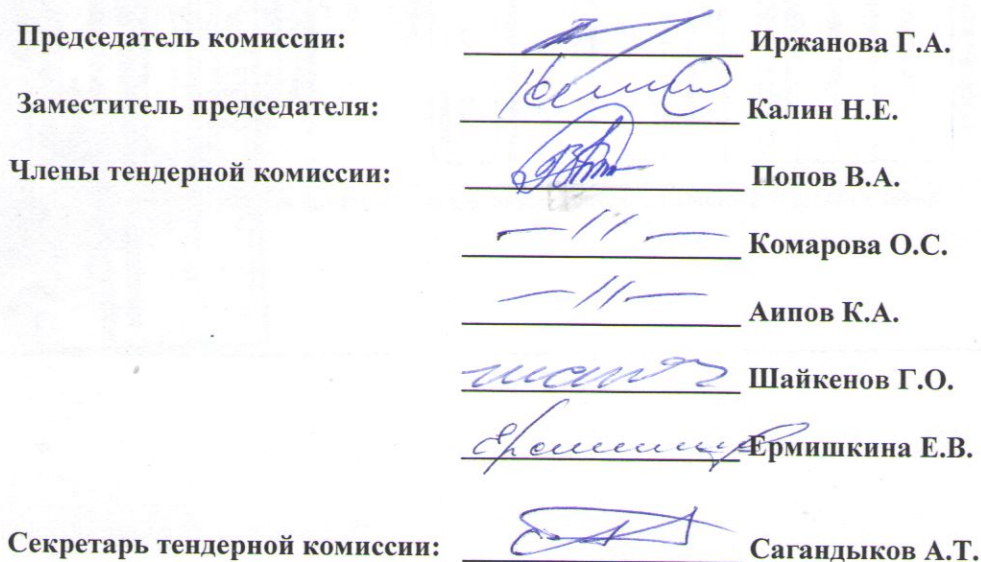 Председатель комиссии: Иржанова Г.А.
Заместитель председателя: Калин Н.Е.
Члены тендерной комиссии: Попов В.А.
—//— Комарова О.С.
—//— Аипов К.А.
Шайкенов Г.О.
Ермишкина Е.В.
Секретарь тендерной комиссии: Сагандыков А.Т.